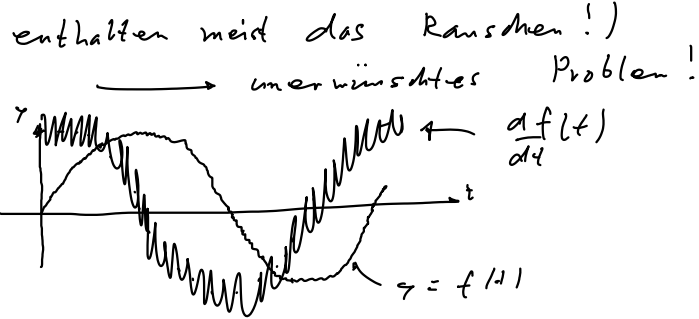 enthalten meist das Rauschen!)
→ unerwünschtes Problem!
y
df(t)
dt
t
y = f(t)